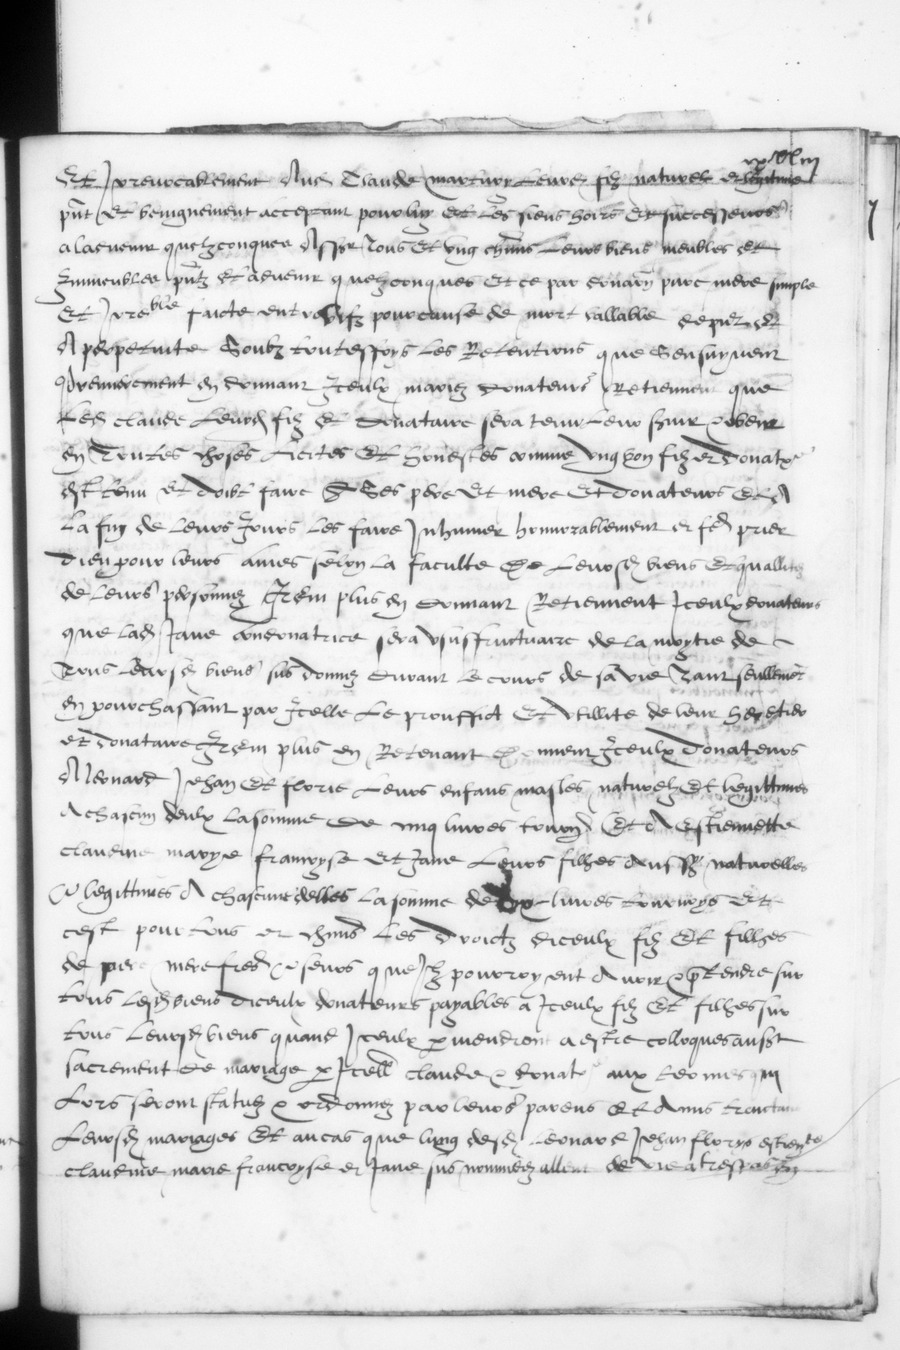 Et Irrevocablement Aud Claude martiny Leurd filz naturel et legitime
pnt et benignement acceptant pour luy Et Les siens hoirs Et successeurs
aladvenir quelzconques Assr Tous Et ung chuns Leurs biens meubles Et
Immeubles pntz Et advenir quelzconques Et ce par donaon pure mere simple
Et Irreble faicte entre vifz pour cause de mort vallable et
A perpetuite Soubz toutesfoys Les Retentions que Sensuyvent
Premierement en donnant Iceulx mariez donateurs Retiennent que
Led claude Leurd filz Et donataire sera tenu Leur obeir
En Toutes choses Licites Et honestes comme ung bon filz et donatre
Est tenu Et doibt faire A Ses pere Et mere Et donateurs Et A
La fin de leurs Jours Les faire Inhumer honnorablement et fe prier
dieu pour leurs ames selon La faculte de Leursd biens Et quallitez
de Leurs personnes Item plus en donnant Retiennent Iceulx donateurs
que lad Jane condonatrice sera usuffructuaire de La moytie de
Tous Leursd biens sus donnez durant Le cours de sa vie tant seullemet
En pourchassant par Icelle Le prouffict Et utillite de leur heretier
et donataire Item plus en Retenant donnent Iceulx Donateurs
A Leonard Jehan Et florie Leurs enfans masles naturelz Et legittimes
A chascun deulx La somme de cinq livres tourn Et A Estiennette
claudine marye francoyse et Jane Leurs filhes Aussy naturelles
& legittimes A chascune delles La somme de livres tournoys Et
cest pour tous et chuns Les Droictz diceulx filz Et filhes
de pere mere freres & seurs que Ilz pourroyent Avoir & ptendre sur
tous Lesd biens diceulx donateurs payables a Iceulx filz Et filhes sur
tous Leursd biens quand Iceulx pviendront a estre colloques aust
sacrement de mariage p Icell claude & donatre aux termes qui
Lors seront statuez & ordonnez par leurs parens Et Amis tractant
Leursd mariages Et au cas que lung desd Leonard Jehan florys estiente
claudine marie francoyse et Jane sus nommez allent de vie a trespas